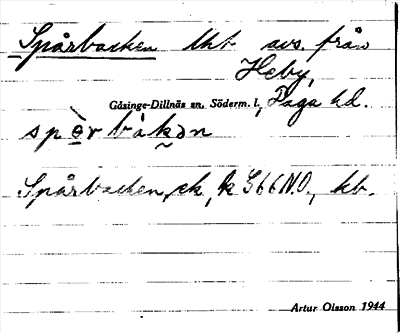 Spårbacken lht avs. från
Heby,
Gåsinge-Dillnäs sn. Söderm. l., Daga hd.
spǫ̀rbàkən
Spårbacken, ek, k G66 N.O., hb.
Artur Olsson 1944